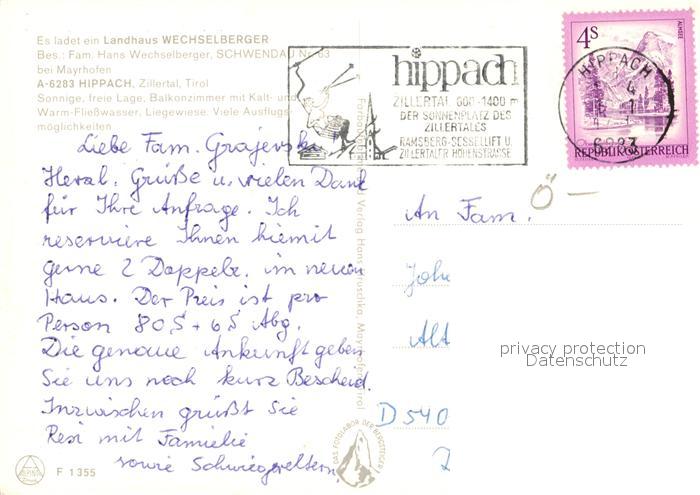 Es ladet ein Landhaus WECHSELBERGER
Bes.: Fam. Hans Wechselberger, SCHWENDAU Nr. 63
bei Mayrhofen
A-6283 HIPPACH, Zillertal, Tirol
Sonnige, freie Lage, Balkonzimmer mit Kalt- und
Warm-Fließwasser, Liegewiese. Viele Ausflugs-
möglichkeiten
hippach
ZILLERTAL 600-1400 m
DER SONNENPLATZ DES
ZILLERTALES
RAMSBERG-SESSELLIFT U.
ZILLERTALER-HÖHENSTRASSE
4s
ALMSEE
HIPPACH
REPUBLIK ÖSTERREICH
Liebe Fam. Grajewski
Herzl. Grüße u. vielen Dank
für Ihre Anfrage. Ich
reserviere Ihnen hiemit
gerne 2 Doppelz. im neuen
Haus. Der Preis ist pro
Person 80 S + 6 S Abg.
Die genaue Ankunft geben
Sie uns noch kurz Bescheid.
Inzwischen grüßt Sie
Resi mit Familie
sowie Schwiegereltern.
Verlag Hans Hruschka, Mayrhofen, Tirol
DAS FOTOLABOR DER BERGSTEIGER
F 1355
Ö —
An Fam.
Joh
Alt
D 540
privacy protection
Datenschutz